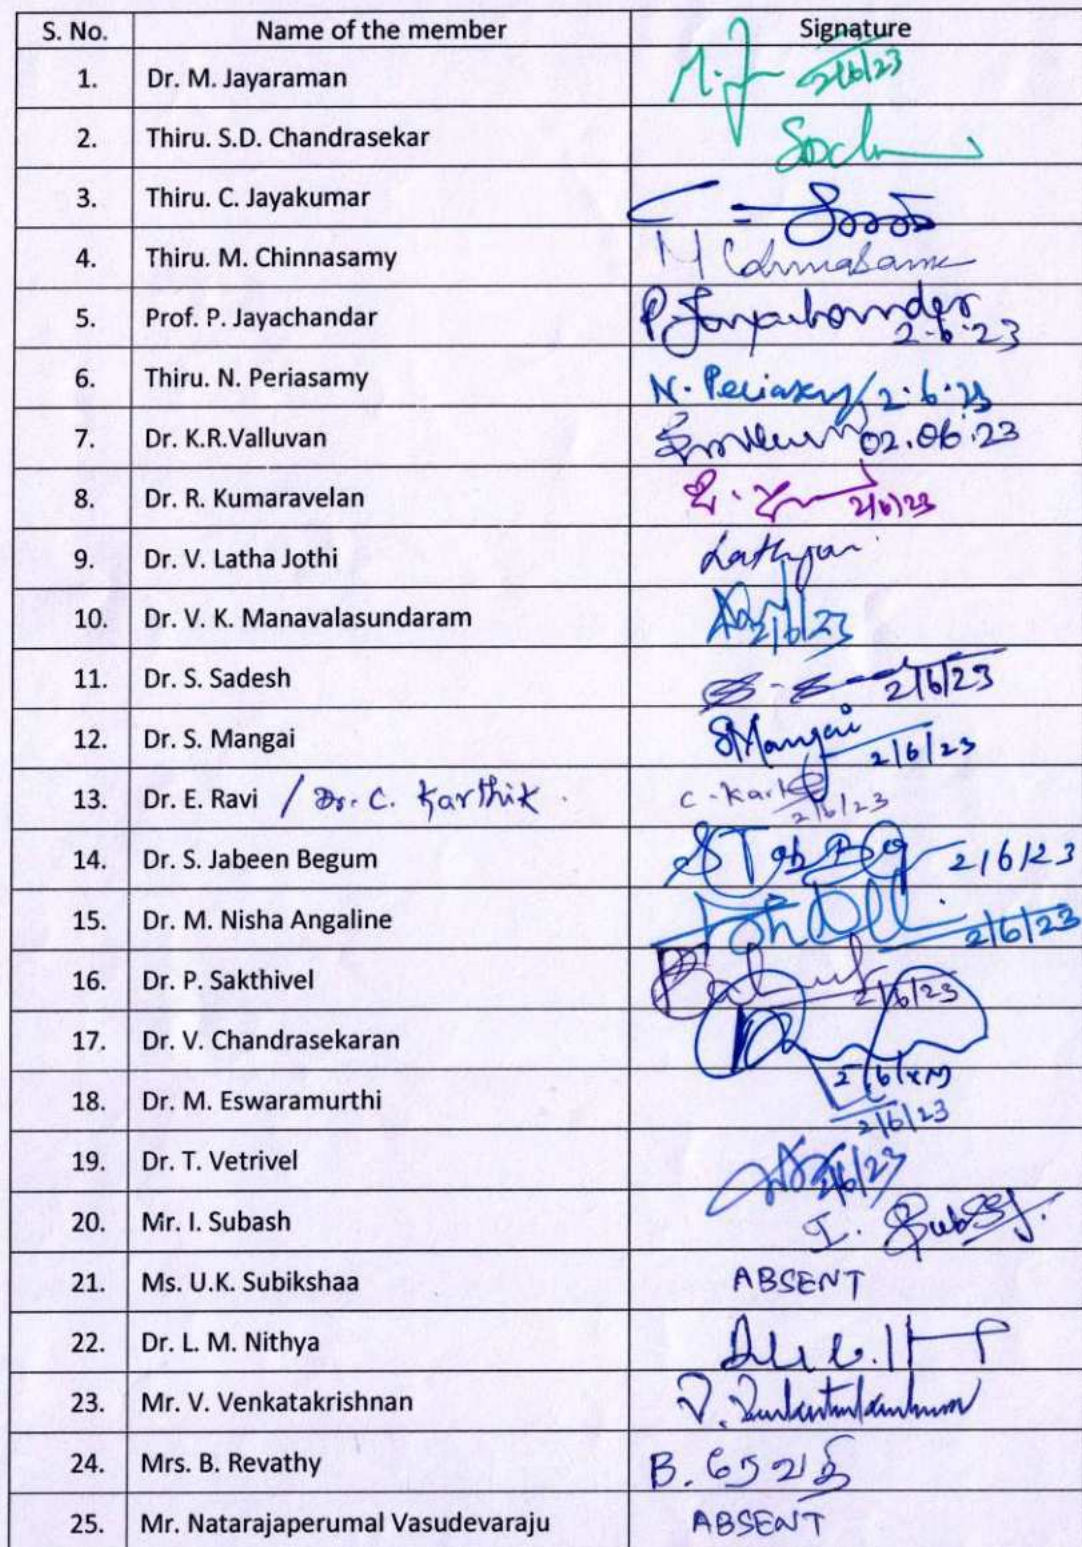 S. No. Name of the member Signature
1. Dr. M. Jayaraman 2/6/23
2. Thiru. S.D. Chandrasekar
3. Thiru. C. Jayakumar
4. Thiru. M. Chinnasamy
5. Prof. P. Jayachandar P. Jayachander
2.6.23
6. Thiru. N. Periasamy N. Periasamy 2.6.23
7. Dr. K.R.Valluvan 02.06.23
8. Dr. R. Kumaravelan 2/6/23
9. Dr. V. Latha Jothi
10. Dr. V. K. Manavalasundaram 2/6/23
11. Dr. S. Sadesh 2/6/23
12. Dr. S. Mangai S Mangai 2/6/23
13. Dr. E. Ravi / Dr. C. Karthik C. Kart
2/6/23
14. Dr. S. Jabeen Begum 2/6/23
15. Dr. M. Nisha Angaline 2/6/23
16. Dr. P. Sakthivel 2/6/23
17. Dr. V. Chandrasekaran
18. Dr. M. Eswaramurthi 2/6/23
19. Dr. T. Vetrivel 2/6/23
20. Mr. I. Subash I. Subash
21. Ms. U.K. Subikshaa ABSENT
22. Dr. L. M. Nithya
23. Mr. V. Venkatakrishnan V. Venkatakrishnan
24. Mrs. B. Revathy B. ரேவதி
25. Mr. Natarajaperumal Vasudevaraju ABSENT